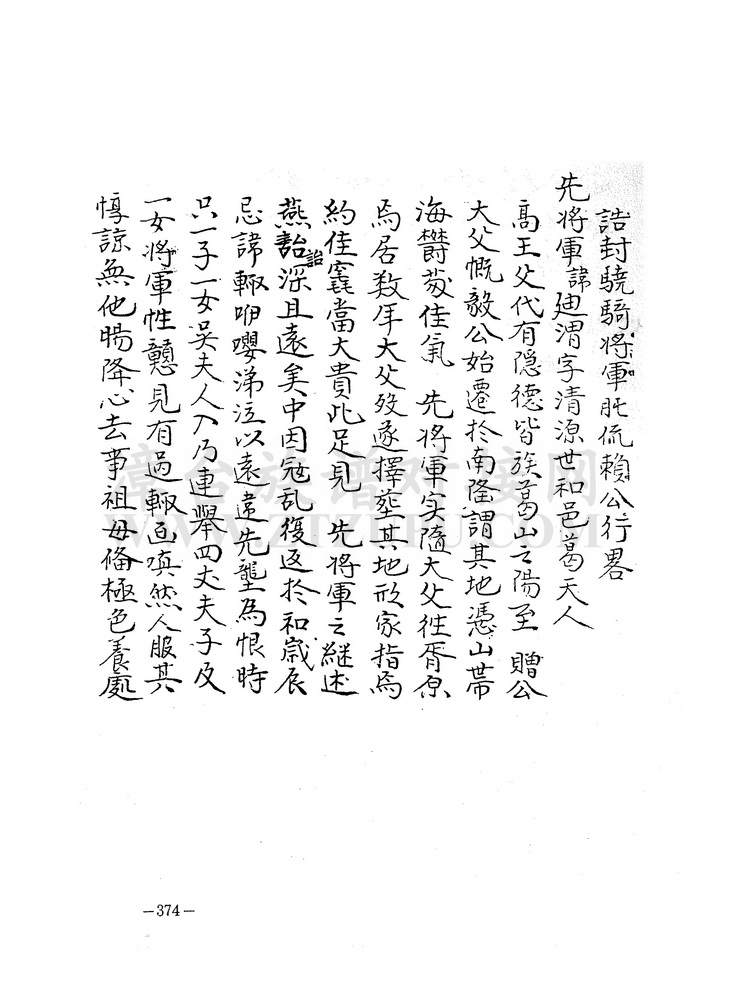 誥封驍騎將軍肫侃賴公行畧
先將軍諱廸渭字清源世和邑葛天人
高王父代有隠德皆族葛山之陽至 贈公
大父慨毅公始遷於南隆謂其地憑山帶
海欝葱佳氣 先將軍实隨大父徃胥原
焉居数年大父殁遂擇塟其地形家指為
約佳窀當大貴此足見 先將軍之継述
燕詒詒深且遠矣中因寇乱復返於和嵗辰
忌諱輙咿嚶涕泣以遠違先壟為恨時
只一子一女吳夫人入乃連舉四丈夫子及
一女將軍性戇見有過輙面嗔然人服其
惇諒無他腸降心去事祖母俻極色養處
漳台族谱对接网
WWW.ZTZUPU.COM
—374—